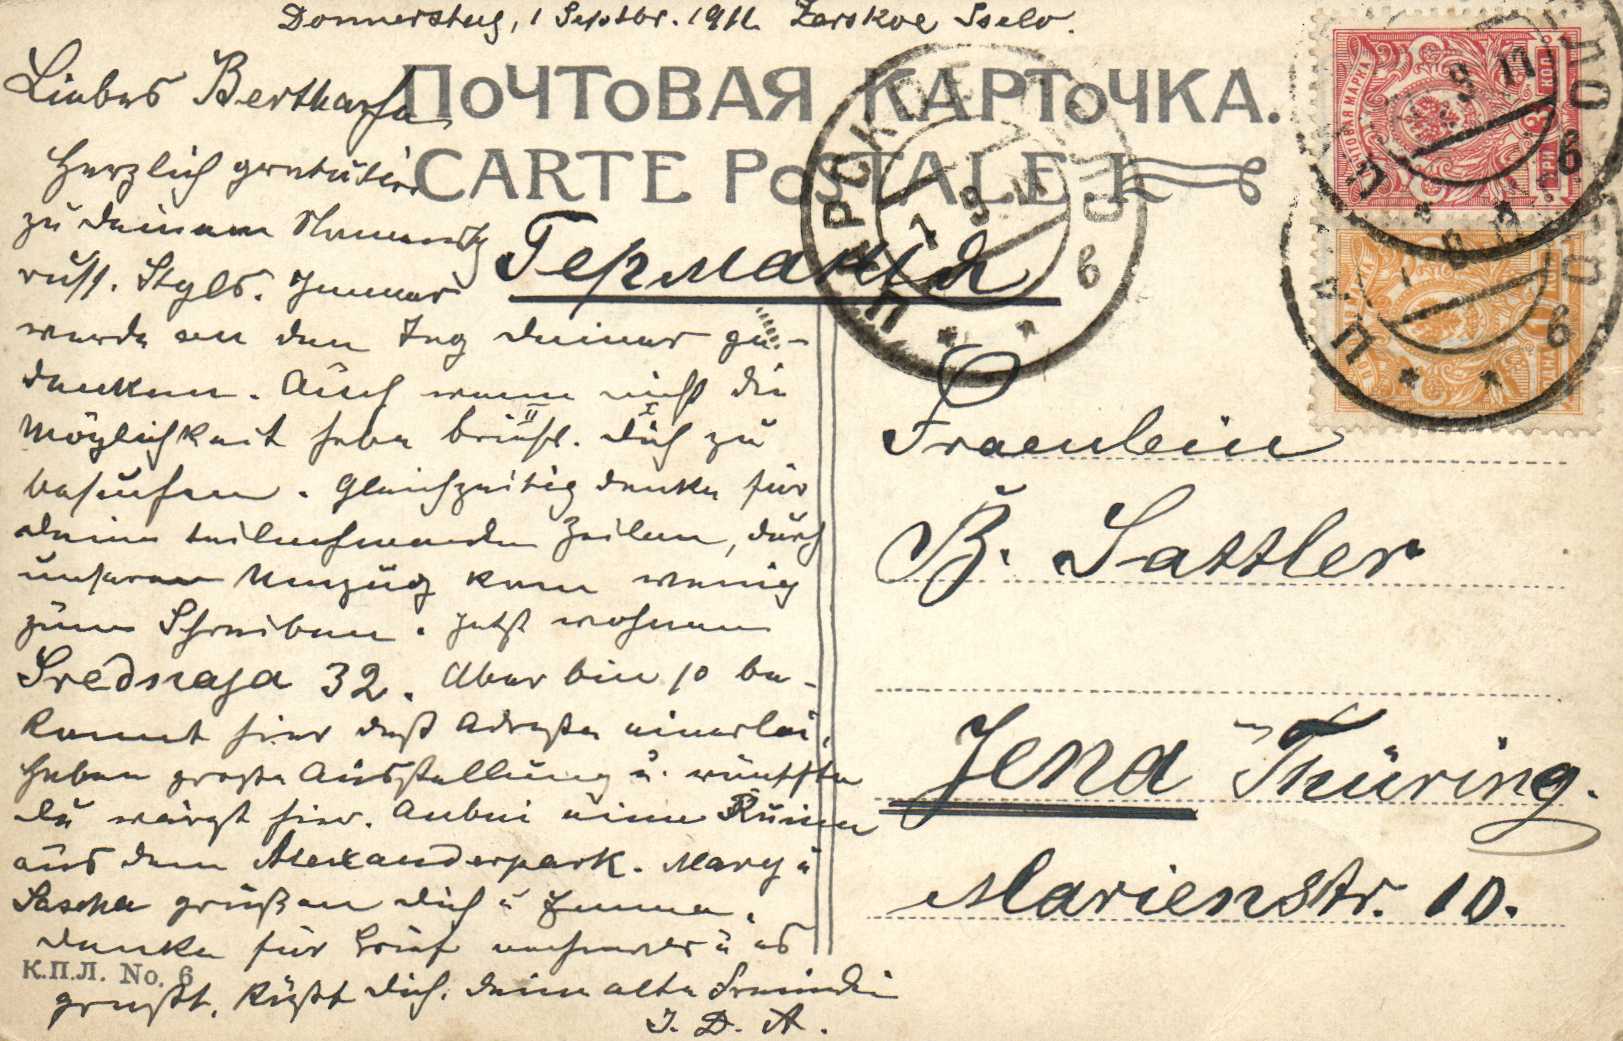 Donnerstag, 1 Septbr. 1911. Zarskoe Sselo.
ПОЧТОВАЯ КАРТОЧКА.
CARTE POSTALE
Liebes Berthchen
Herzlich gratuliere
zu deinem Namenstg
russ. Styls. Immer
werde an den Tag deiner ge-
denken. Auch wenn nicht die
Möglichkeit habe briefl. dich zu
besuchen. Gleichzeitig danke für
deine teilnehmenden Zeilen, durch
unseren Umzug kam wenig
zum Schreiben. Jetzt wohnen
Srednaja 32. Aber bin so be-
kannt hier daß Adresse einerlei,
haben große Ausstellung u. wünschte
du wärest hier. Anbei eine Ruine
aus dem Alexanderpark. Mary u
Sascha grüßen dich u Emma,
danke für Brief u es
grüßt, küßt dich, deine alte Freundin
J. D. A.
К.П.Л. No. 6
Германія
Fraeulein
B. Sattler
Jena Thüring.
Marienstr. 10.
ПОЧТОВАЯ МАРКА
3 КОП
ЦАРСКОЕ СЕЛО
1 9 11
6